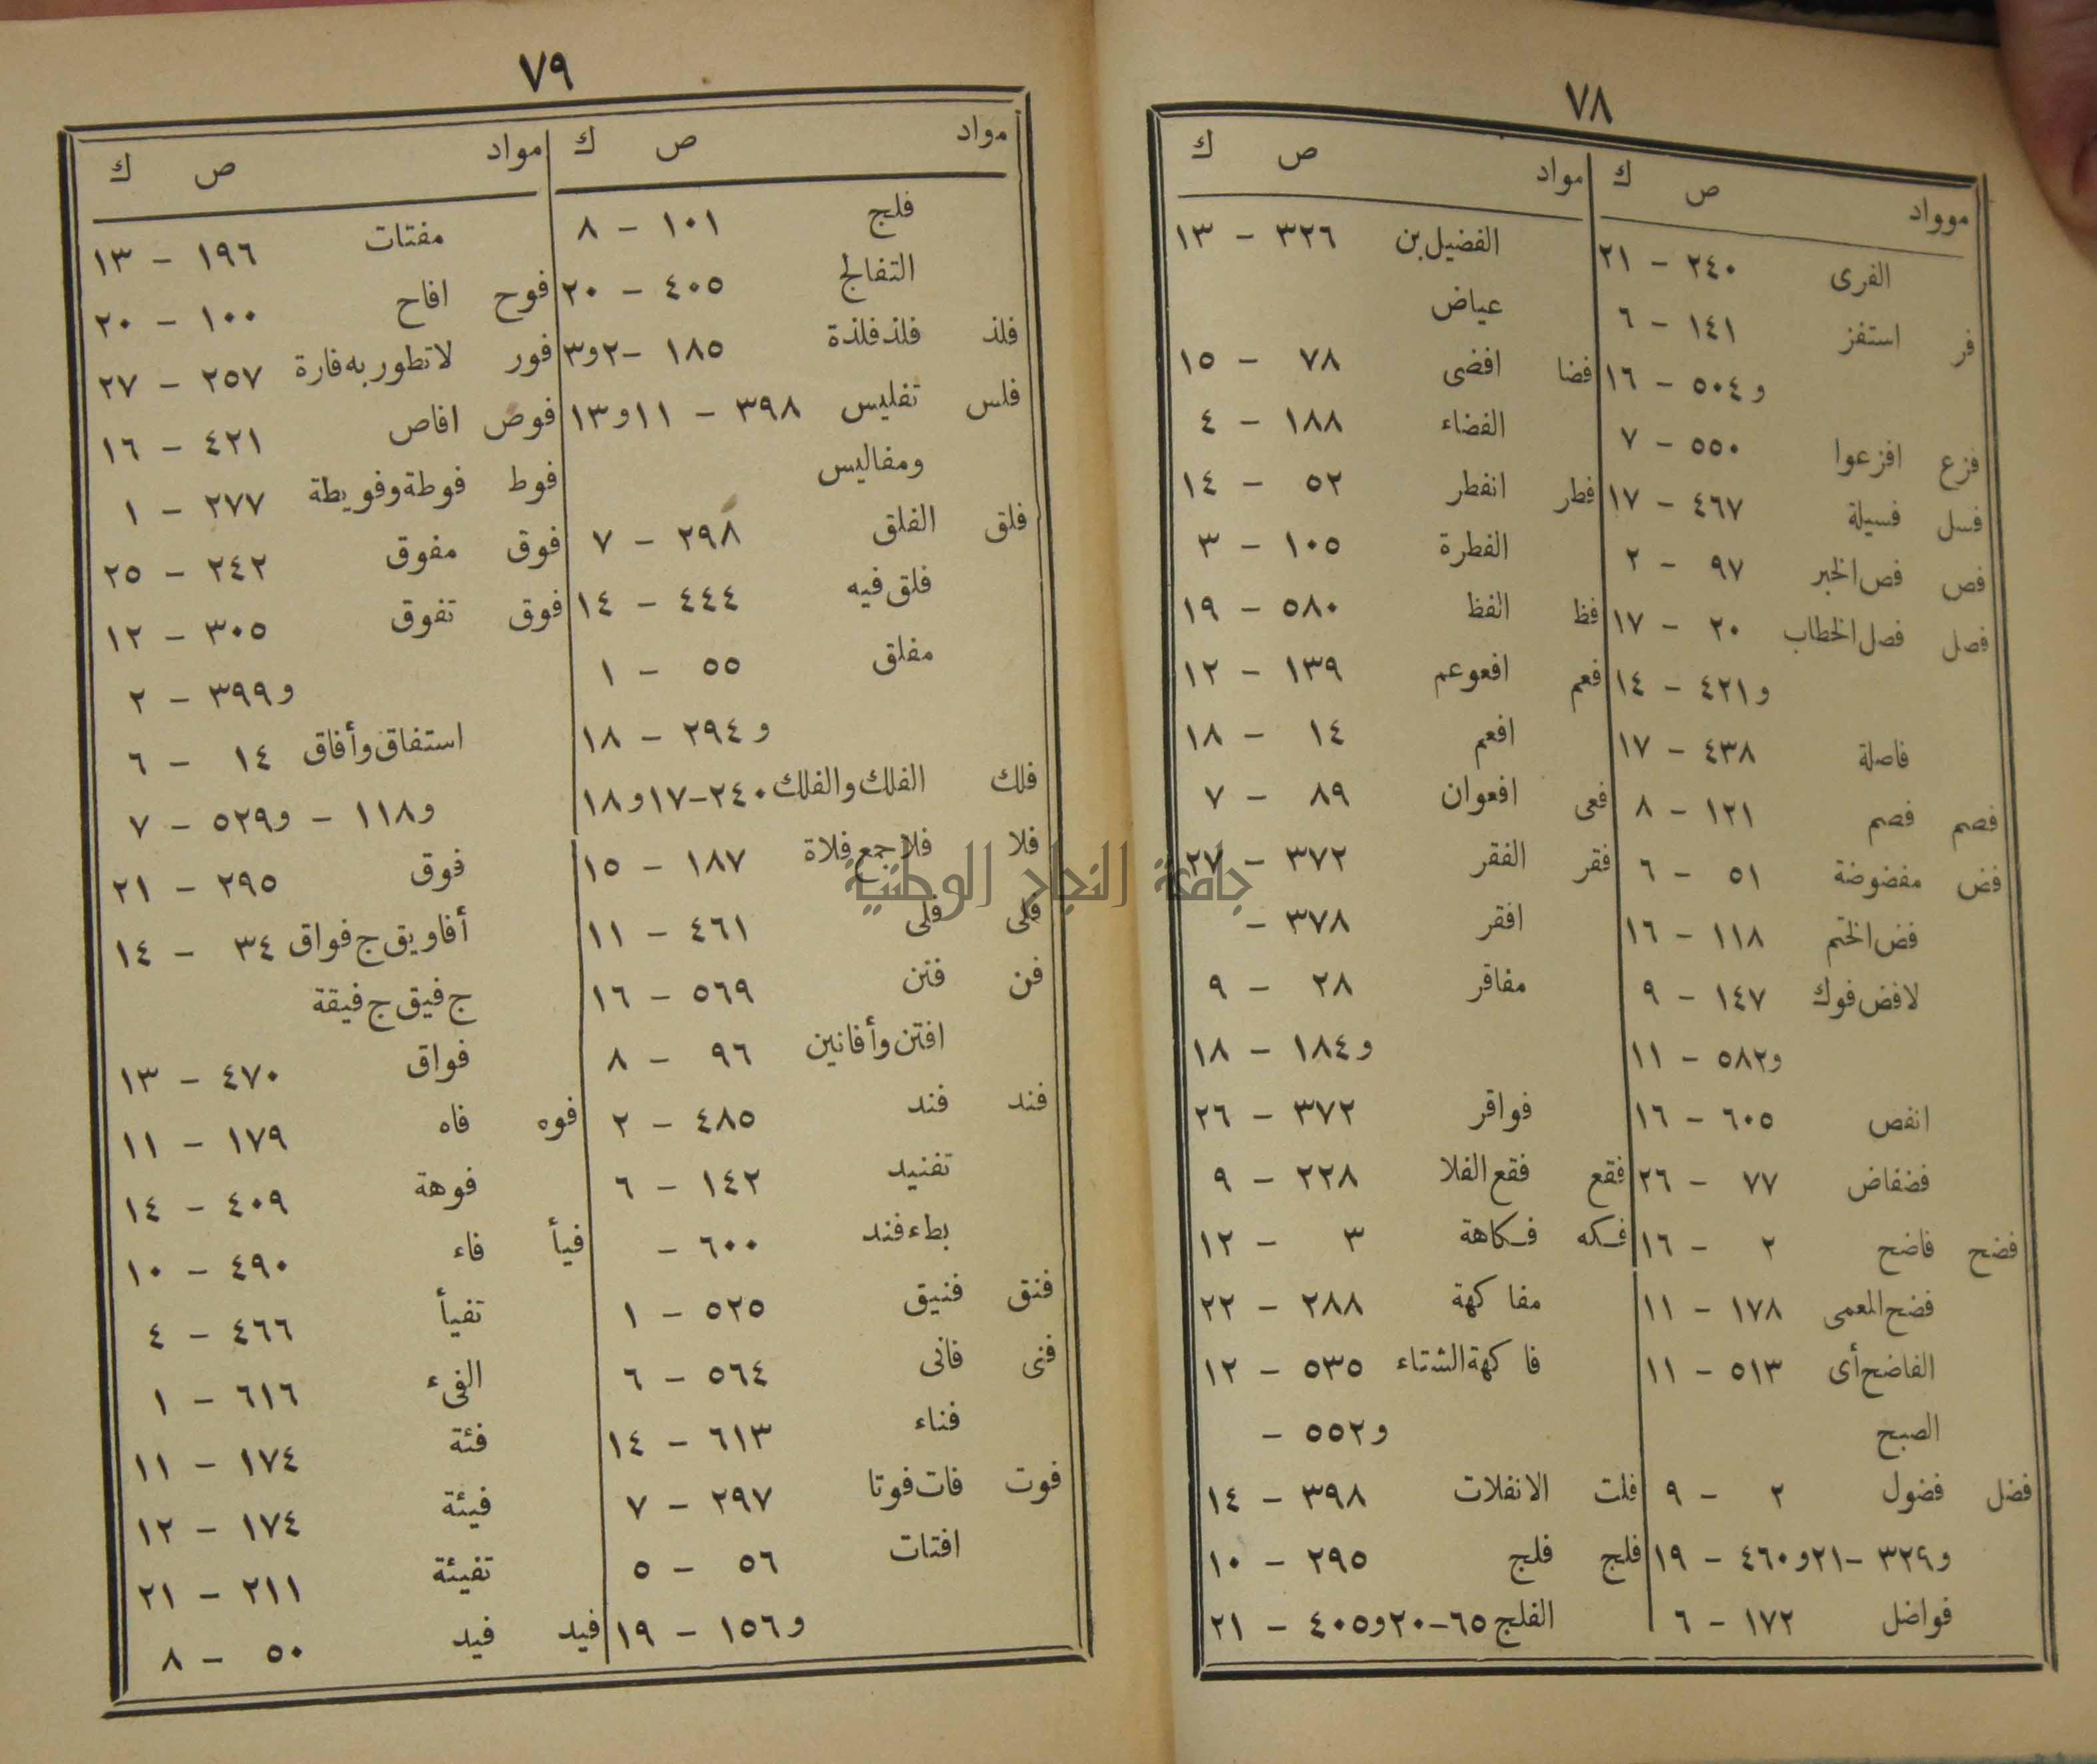 ٧٨
موواد ص ك
الفرى ٢٤٠ - ٢١
فر استفز ١٤١ - ٦
و ٥٠٤ - ١٦
فزع افزعوا ٥٥٠ - ٧
فسل فسيلة ٤٦٧ - ١٧
فص فص الخبر ٩٧ - ٢
فصل فصل الخطاب ٢٠ - ١٧
و ٤٢١ - ١٤
فاصلة ٤٣٨ - ١٧
فصم فصم ١٢١ - ٨
فض مفضوضة ٥١ - ٦
فض الختم ١١٨ - ١٦
لافض فوك ١٤٧ - ٩
و ٥٨٢ - ١١
انفص ٦٠٥ - ١٦
فضفاض ٧٧ - ٢٦
فضح فاضح ٢ - ١٦
فضح المعمى ١٧٨ - ١١
الفاضح أى ٥١٣ - ١١
الصبح
فضل فضول ٢ - ٩
و ٣٢٩ - ٢١ و ٤٦٠ - ١٩
فواضل ١٧٢ - ٦
مواد ص ك
الفضيل بن ٣٢٦ - ١٣
عياض
فضا افضى ٧٨ - ١٥
الفضاء ١٨٨ - ٤
فطر انفطر ٥٢ - ١٤
الفطرة ١٠٥ - ٣
فظ الفظ ٥٨٠ - ١٩
فعم افعوعم ١٣٩ - ١٢
افعم ١٤ - ١٨
فعى افعوان ٨٩ - ٧
فقر الفقر ٣٧٢ - ٢٧
افقر ٣٧٨ -
مفاقر ٢٨ - ٩
و ١٨٤ - ١٨
فواقر ٣٧٢ - ٢٦
فقع فقع الفلا ٢٢٨ - ٩
فكه فكاهة ٣ - ١٢
مفاكهة ٢٨٨ - ٢٢
فاكهة الشتاء ٥٣٥ - ١٢
و ٥٥٢ -
فلت الانفلات ٣٩٨ - ١٤
فلج فلج ٢٩٥ - ١٠
الفلج ٦٥ - ٢٠ و ٤٠٥ - ٢١
٧٩
مواد ص ك
فلج ١٠١ - ٨
التفالج ٤٠٥ - ٢٠
فلذ فلذ فلذة ١٨٥ - ٢ و ٣
فلس تفليس ٣٩٨ - ١١ و ١٣
ومفاليس
فلق الفلق ٢٩٨ - ٧
فلق فيه ٤٤٤ - ١٤
مفلق ٥٥ - ١
و ٢٩٤ - ١٨
فلك الفلك والفلك ٢٤٠ - ١٧ و ١٨
فلا فلا جمع فلاة ١٨٧ - ١٥
فلى فلى ٤٦١ - ١١
فن فتن ٥٦٩ - ١٦
افتن وأفانين ٩٦ - ٨
فند فند ٤٨٥ - ٢
تفنيد ١٤٢ - ٦
بطء فند ٦٠٠ -
فنق فنيق ٥٢٥ - ١
فنى فانى ٥٦٤ - ٦
فناء ٦١٣ - ١٤
فوت فات فوتا ٢٩٧ - ٧
افتات ٥٦ - ٥
و ١٥٦ - ١٩
مواد ص ك
مفتات ١٩٦ - ١٣
فوح افاح ١٠٠ - ٢٠
فور لا تطور به فارة ٢٥٧ - ٢٧
فوص افاص ٤٢١ - ١٦
فوط فوطة وفويطة ٢٧٧ - ١
فوق مفوق ٢٤٢ - ٢٥
فوق تفوق ٣٠٥ - ١٢
و ٣٩٩ - ٢
استفاق وأفاق ١٤ - ٦
و ١١٨ - و ٥٢٩ - ٧
فوق ٢٩٥ - ٢١
أفاويق ج فواق ٣٤ - ١٤
ج فيق ج فيقة
فواق ٤٧٠ - ١٣
فوه فاه ١٧٩ - ١١
فوهة ٤٠٩ - ١٤
فيأ فاء ٤٩٠ - ١٠
تفيأ ٤٦٦ - ٤
الفىء ٦١٦ - ١
فئة ١٧٤ - ١١
فيئة ١٧٤ - ١٢
تفيئة ٢١١ - ٢١
فيد فيد ٥٠ - ٨
جامعة النجاح الوطنية